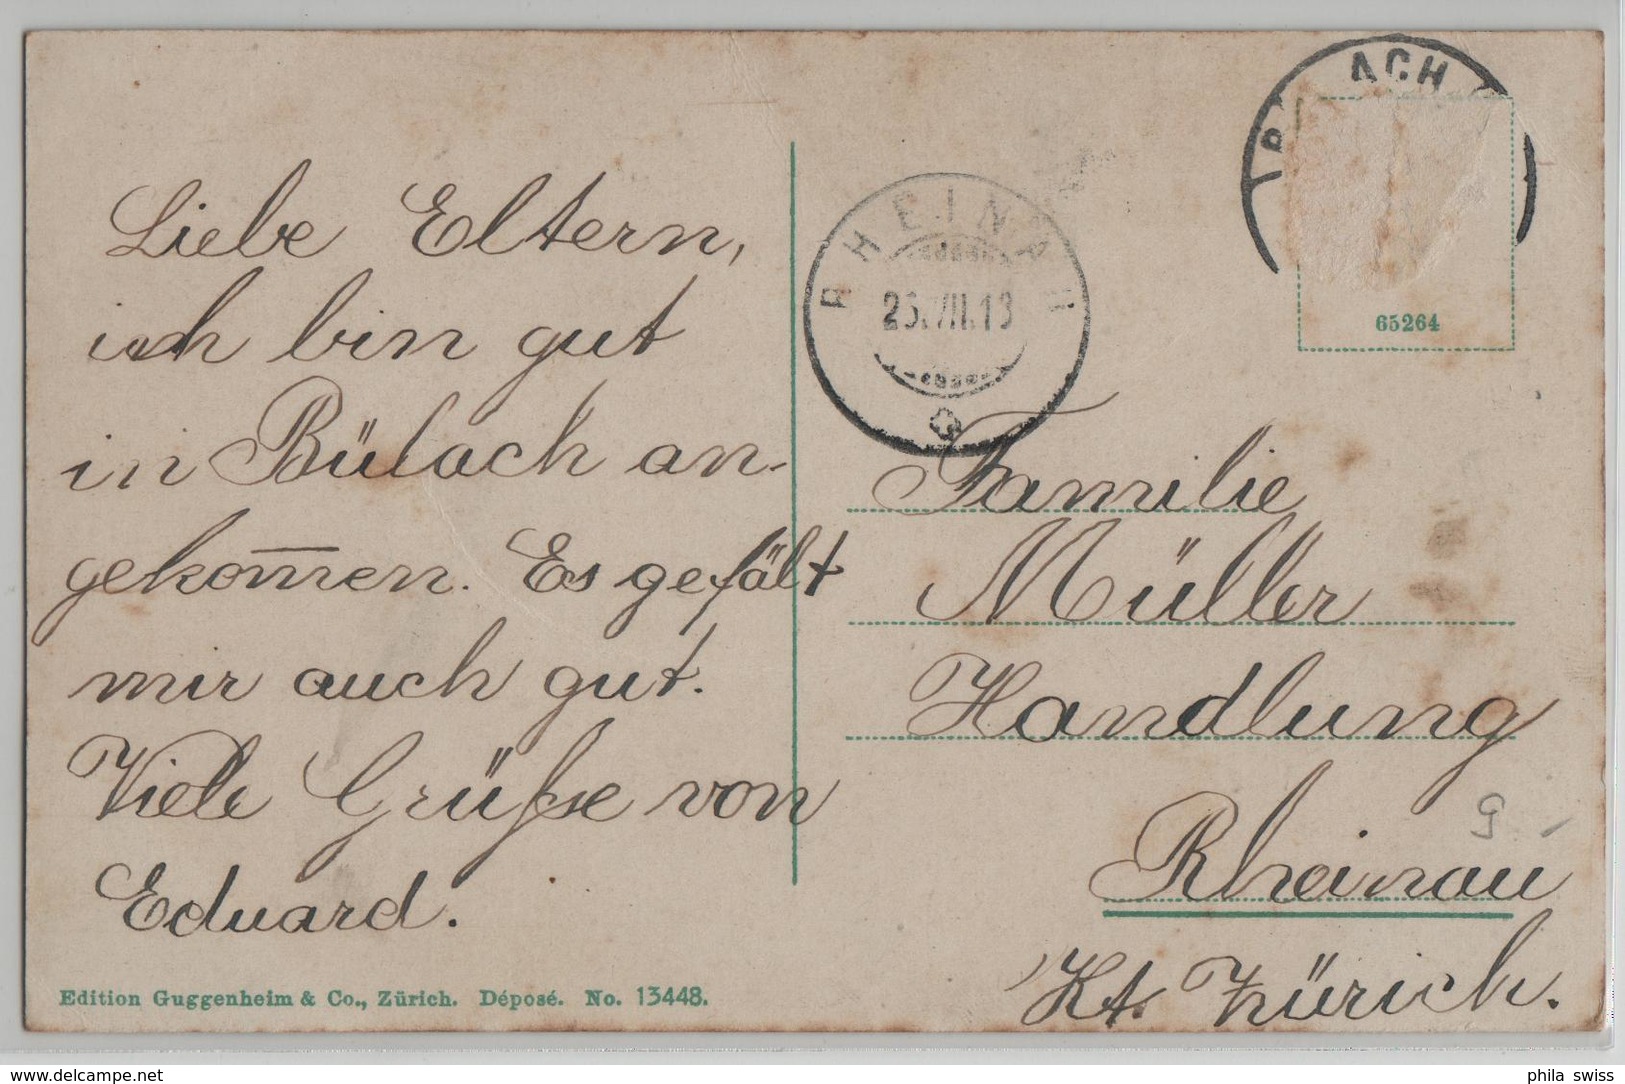 Liebe Eltern,
ich bin gut
in Bülach an-
gekom̅en. Es gefält
mir auch gut.
Viele Grüsse von
Eduard.
Edition Guggenheim & Co., Zürich. Déposé. No. 13448.
RHEINAU
ACH
65264
Familie
Müller
Handlung
Rheinau
Kt. Zürich.
www.delcampe.net
phila swiss